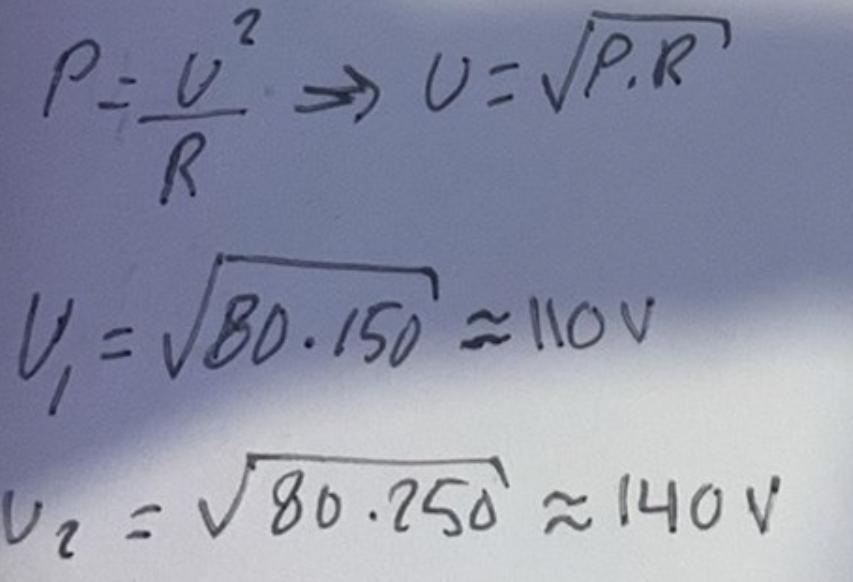 P = U²/R ⇒ U = √P.R
U₁ = √80.150 ≈ 110 V
U₂ = √80.250 ≈ 140 V